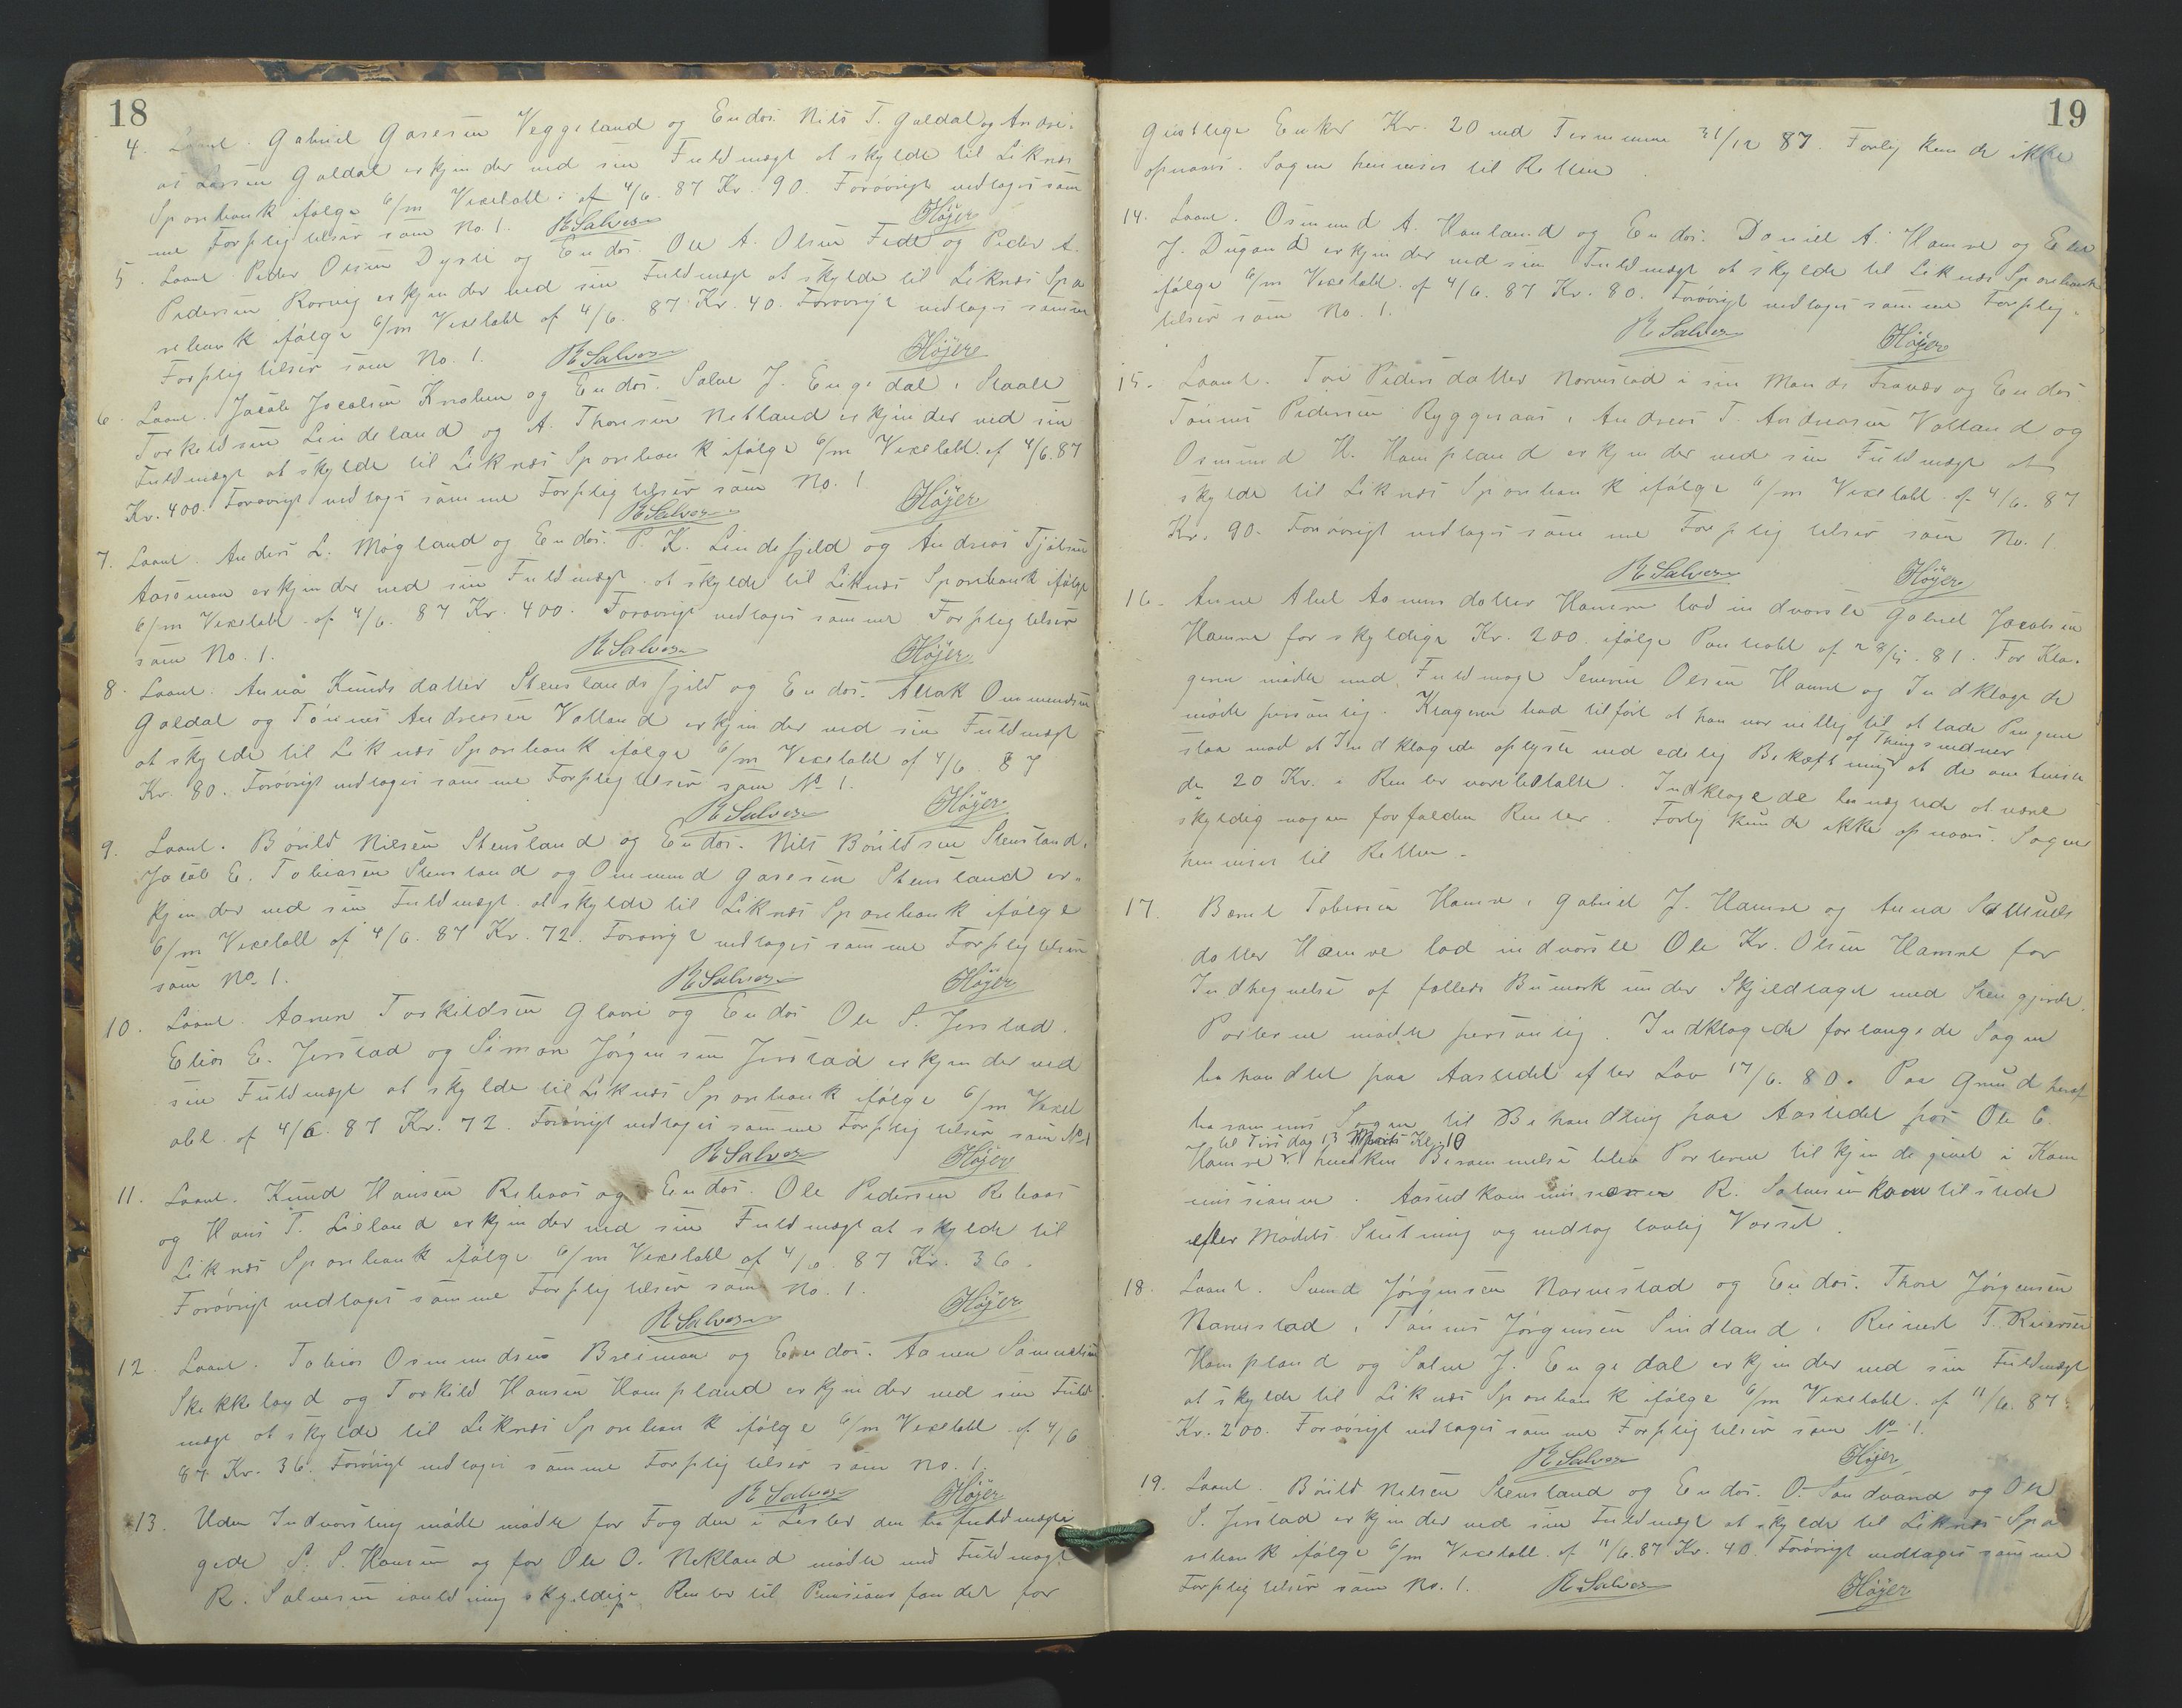 18
4. Laant. Gabriel Gasesen Veggeland og Endos. Nils T. Galdal og Andre-
as Larsen Galdal erkjender ved sin Fuldmægt at skylde til Liknæs
Sparebank ifølge 6/m Vexelobl. af 4/6. 87 Kr. 90. Forøvrigt vedtages sam
me Forpligtelser som No. 1. R Salves Höyer
5. Laant Peder Olsen Dysle og Endos. Ole A. Olsen Fede og Peder A.
Pedersen Rørvig erkjender ved sin Fuldmægt at skylde til Liknæs Spa
rebank ifølge 6/m Vexelobl af 4/6. 87 Kr. 40. Forøvrigt vedtages samme
Forpligtelser som No. 1. R Salves Höyer
6. Laant. Jacob Jacobsen Kvolen og Endos. Salve J. Engedal, Staale
Torkeldsen Lindeland og A. Thorsen Netland erkjender ved sin
Fuldmægt at skylde til Liknæs Sparebank ifølge 6/m Vexelobl. af 4/6. 87
Kr. 400. Forøvrigt vedtages samme Forpligtelser som No. 1
R Salves Höyer
7. Laant. Anders L. Møgland og Endos. P. K. Lindefjeld og Andreas Tjølsen
Aasemon erkjender ved sin Fuldmægt at skylde til Liknæs Sparebank ifølge
6/m Vexelobl. af 4/6. 87 Kr. 400. Forøvrigt vedtages samme Forpligtelser
som No. 1. R Salves Höyer
8. Laant. Anna Knudsdatter Stenslandsfjeld og Endos. Atlak Ommundsen
Galdal og Tønnes Andreasen Valland erkjender ved sin Fuldmægt
at skylde til Liknæs Sparebank ifølge 6/m Vexelobl af 4/6 87
Kr. 80. Forøvrigt vedtages samme Forpligtelser som No 1.
R Salves Höyer
9. Laant. Børild Nilsen Stensland og Endos. Nils Børildsen Stensland,
Jacob E. Tobiasen Stensland og Ommund Gasesen Stensland er-
kjender ved sin Fuldmægt at skylde til Liknæs Sparebank ifølge
6/m Vexelobl af 4/6. 87 Kr. 72. Forøvrigt vedtages samme Forpligtelser
som No 1. R Salves Höyer
10. Laant. Aanen Torkildsen Gløvre og Endos Ole S. Jerstad.
Elias E. Jerstad og Simon Jørgensen Jerstad erkjender ved
sin Fuldmægt at skylde til Liknæs Sparebank ifølge 6/m Vexel
obl. af 4/6. 87 Kr. 72. Forøvrigt vedtages samme Forpligtelser som No 1
R Salves Höyer
11. Laant. Knud Hansen Røkaas og Endos. Ole Pedersen Røkaas
og Hans T. Lieland erkjender ved sin Fuldmægt at skylde til
Liknæs Sparebank ifølge 6/m Vexelobl af 4/6. 87 Kr. 36.
Forøvrigt vedtages samme Forpligtelser som No. 1.
R Salves Höyer
12. Laant. Tobias Osmundsen Breimon og Endos. Aanen Samuelsen
Skekkeland og Torkild Hansen Kampland erkjender ved sin Fuld
mægt at skylde til Liknæs Sparebank ifølge 6/m Vexelobl af 4/6
87 Kr. 36. Forøvrigt vedtages samme Forpligtelser som No. 1.
R Salves Höyer
13. Uden Indvarsling møde mødte for Fogden i Lister den befuldmægti
gede S. S. Hansen og for Ole O. Nekland mødte med Fuldmagt
R. Salvesen skyldige Renter til Pensionsfondet for
19
geistlige Enker Kr. 20 ved Terminen 31/12 87. Forlig kunde ikke
opnaaes. Sagen henvises til Retten.
14. Laant. Osmund A. Hauland og Endos. Daniel A. Hamre og Elias
J. Dugand erkjender ved sin Fuldmægt at skylde til Liknæs Sparebank
ifølge 6/m Vexelobl. af 4/6. 87 Kr. 80. Forøvrigt vedtages samme Forplig-
telser som No. 1. R Salves Höyer
15. Laant. Tore Pedersdatter Narvestad i sin Mands Fravær og Endos.
Tønnes Pedersen Ryggeraas, Andreas T. Andreasen Valland og
Osmund H. Kampland erkjender ved sin Fuldmægt at
skylde til Liknæs Sparebank ifølge 6/m Vexelobl. af 4/6. 87
Kr. 90. Forøvrigt vedtages samme Forpligtelser som No. 1.
R Salves Höyer
16. Anne Abel Aanensdatter Hamre lod indvarsle Gabriel Jacobsen
Hamre for skyldige Kr. 200 ifølge Panteobl af 28/5. 81. For Kla-
geren mødte med Fuldmagt Severin Olsen Hamre og Indklagede
mødte personlig. Klageren lod tilført at han var villig til at lade Pengene
staa mod at Indklagede oplyste ved edelig Bekræftning af Thingsvidner at de omtvistede
20 Kr. i Renter vare betalte. Indklagede benægtede at være
skyldig nogen forfalden Renter. Forlig kunde ikke opnaaes. Sagen
henvises til Retten.
17. Bernt Tobiasen Hamre, Gabriel J. Hamre og Anna Samuels
datter Hamre lod indvarsle Ole Kr. Olsen Hamre for
Indhegnelse af fælleds Bumark under Skjeldraget med Stengjerde.
Parterne mødte personlig. Indklagede forlangede Sagen
behandlet paa Aastedet efter Lov 17/6. 80. Paa Grund heraf
berammes Sagen til Behandling paa Aastedet hos Ole C.
Hamre til Tirsdag 13 Marts Kl. 10 hvilken Berammelse blev Parterne tilkjendegivet i Kom
missionen. Aastedkommissæren R. Salvesen kom tilstede
efter Mødets Slutning og vedtog lovlig Varsel.
18. Laant. Svend Jørgensen Narvestad og Endos. Thore Jørgensen
Narvestad, Tønnes Jørgensen Sindland, Reinert T. Reiersen
Kampland og Salve J. Engedal erkjender ved sin Fuldmægt
at skylde til Liknæs Sparebank ifølge 6/m Vexelobl. af 11/6. 87.
Kr. 200. Forøvrigt vedtages samme Forpligtelser som No 1.
R Salves Höyer
19. Laant. Børild Nilsen Stensland og Endos. O. Sandvand og Ole
S. Jerstad erkjender ved sin Fuldmægt at skylde til Liknæs Spa
rebank ifølge 6/m Vexelobl. af 11/6. 87 Kr. 40. Forøvrigt vedtages samme
Forpligtelser som No. 1. R Salves Höyer